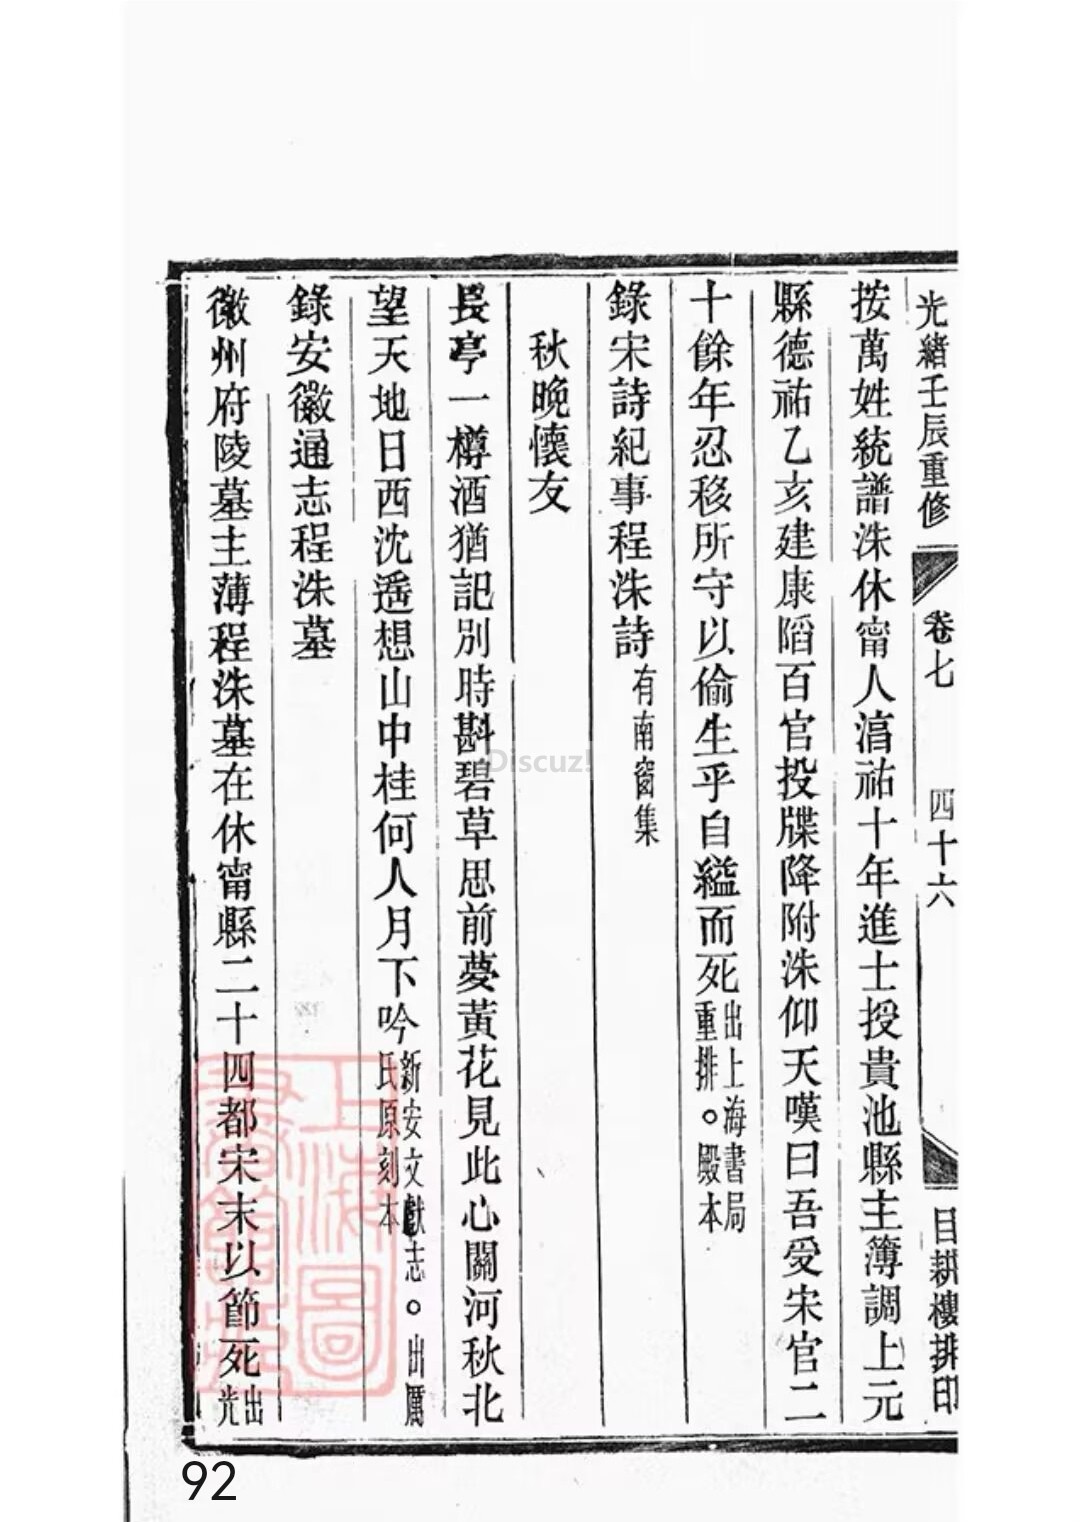 光緒壬辰重修 卷七 四十六 目耕樓排印
按萬姓統譜洙休甯人淯祐十年進士授貴池縣主簿調上元
縣德祐乙亥建康陷百官投牒降附洙仰天嘆曰吾受宋官二
十餘年忍移所守以偷生乎自縊而死出上海書局重排。殿本
錄宋詩紀事程洙詩有南窗集
秋晚懷友
長亭一樽酒猶記別時斟碧草思前夢黃花見此心關河秋北
望天地日西沈遥想山中桂何人月下吟新安文獻志。出厲氏原刻本
錄安徽通志程洙墓
徽州府陵墓主薄程洙墓在休甯縣二十四都宋末以節死出光
上海圖書館藏
Discuz!
92